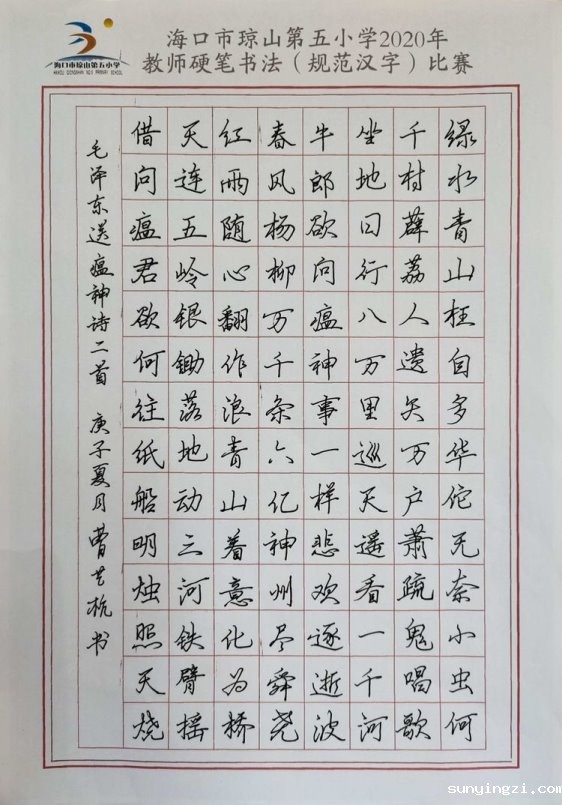 海口市琼山第五小学
HAIKOU QIONGSHAN NO.5 PRIMARY SCHOOL
海口市琼山第五小学2020年
教师硬笔书法（规范汉字）比赛
绿水青山枉自多华佗无奈小虫何
千村薜荔人遗矢万户萧疏鬼唱歌
坐地日行八万里巡天遥看一千河
牛郎欲问瘟神事一样悲欢逐逝波
春风杨柳万千条六亿神州尽舜尧
红雨随心翻作浪青山着意化为桥
天连五岭银锄落地动三河铁臂摇
借问瘟君欲何往纸船明烛照天烧
毛泽东送瘟神诗二首 庚子夏月曹芝杭书
sunyingzi.com